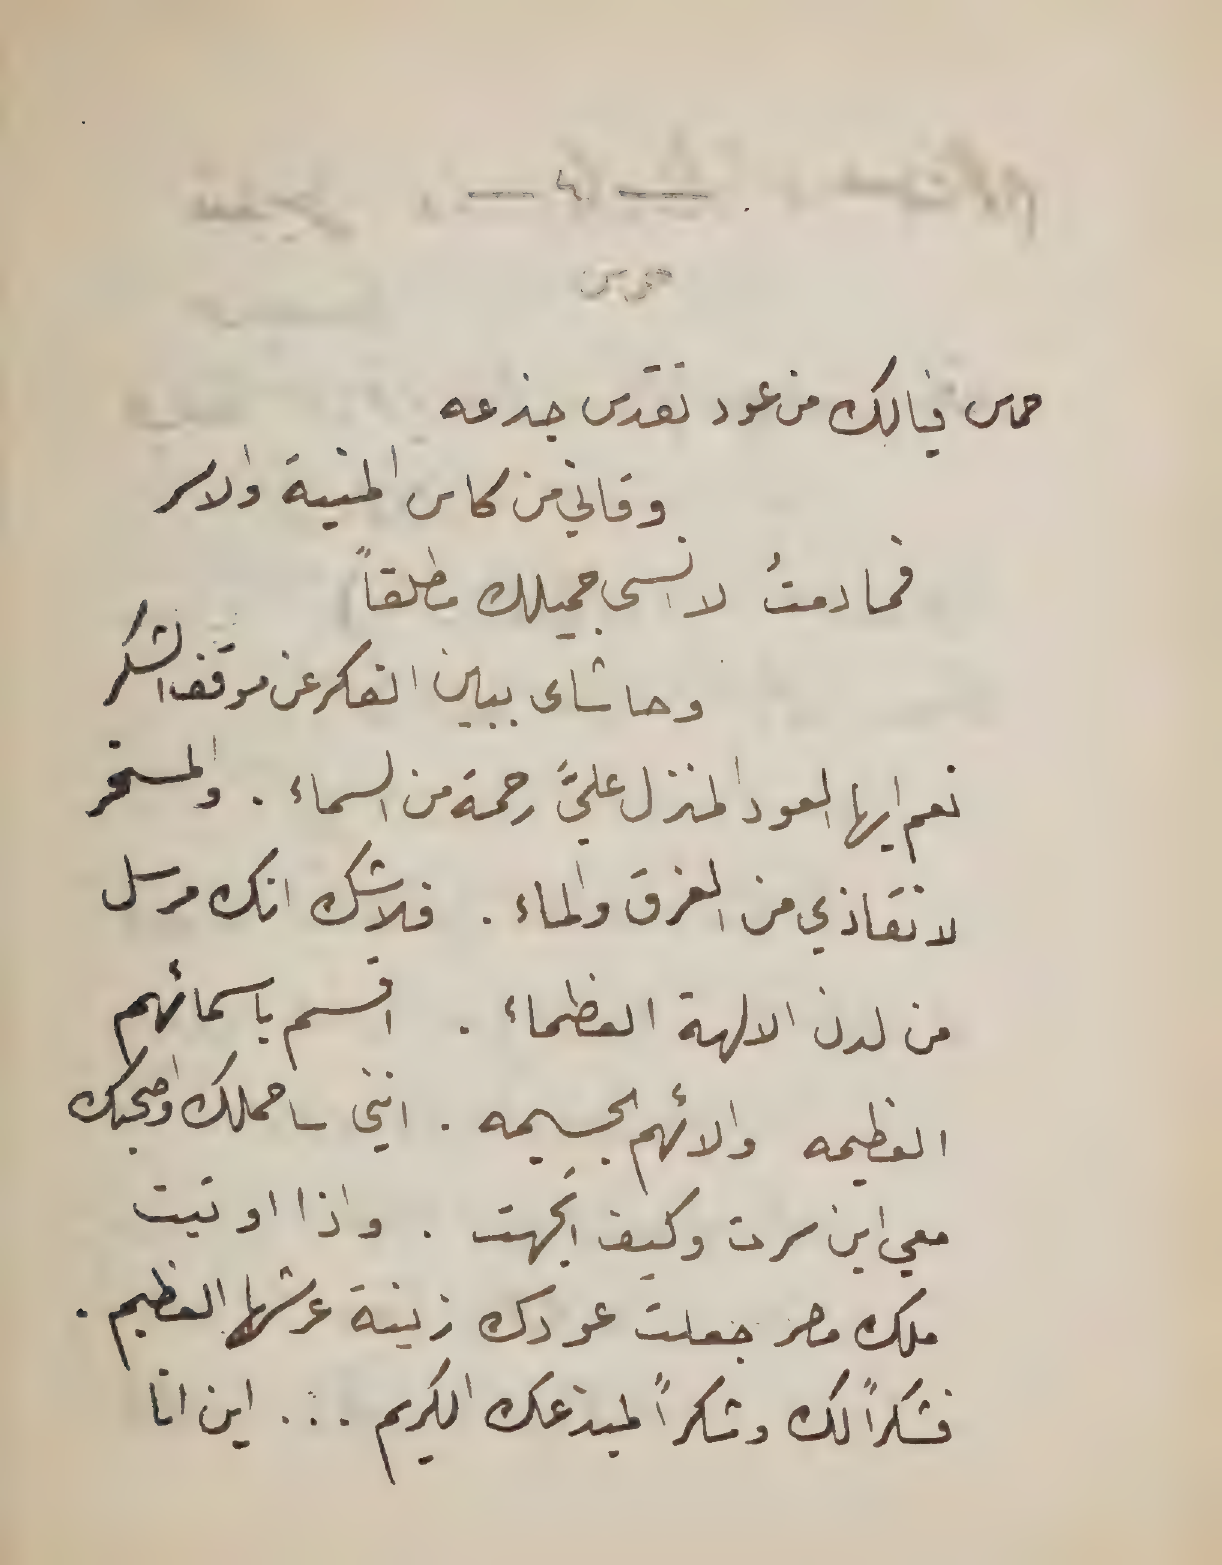 — ٤ —
حورس
حماس فيالك من عود تقدس جذعه
وقاني من كاس المنية والاسر
فما دمتُ لا انسى جميلك مطلقاً
وحاشاى ببين الفكر عن موقف الشكر
نعم ايها العود المنزل عليَّ رحمة من السماء . والمسخر
لانقاذي من الغرق والماء . فلا شك انك مرسل
من لدن الالهة العظماء . اقسم باسمائهم
العظيمه والائهم الجسيمه . انني ساحملك واصحبك
معي اين سرت وكيف اتجهت . واذا اوتيت
ملك مصر جعلت عودك زينة عرشها العظيم .
فشكراً لك وشكراً لمبدعك الكريم ... اين انا